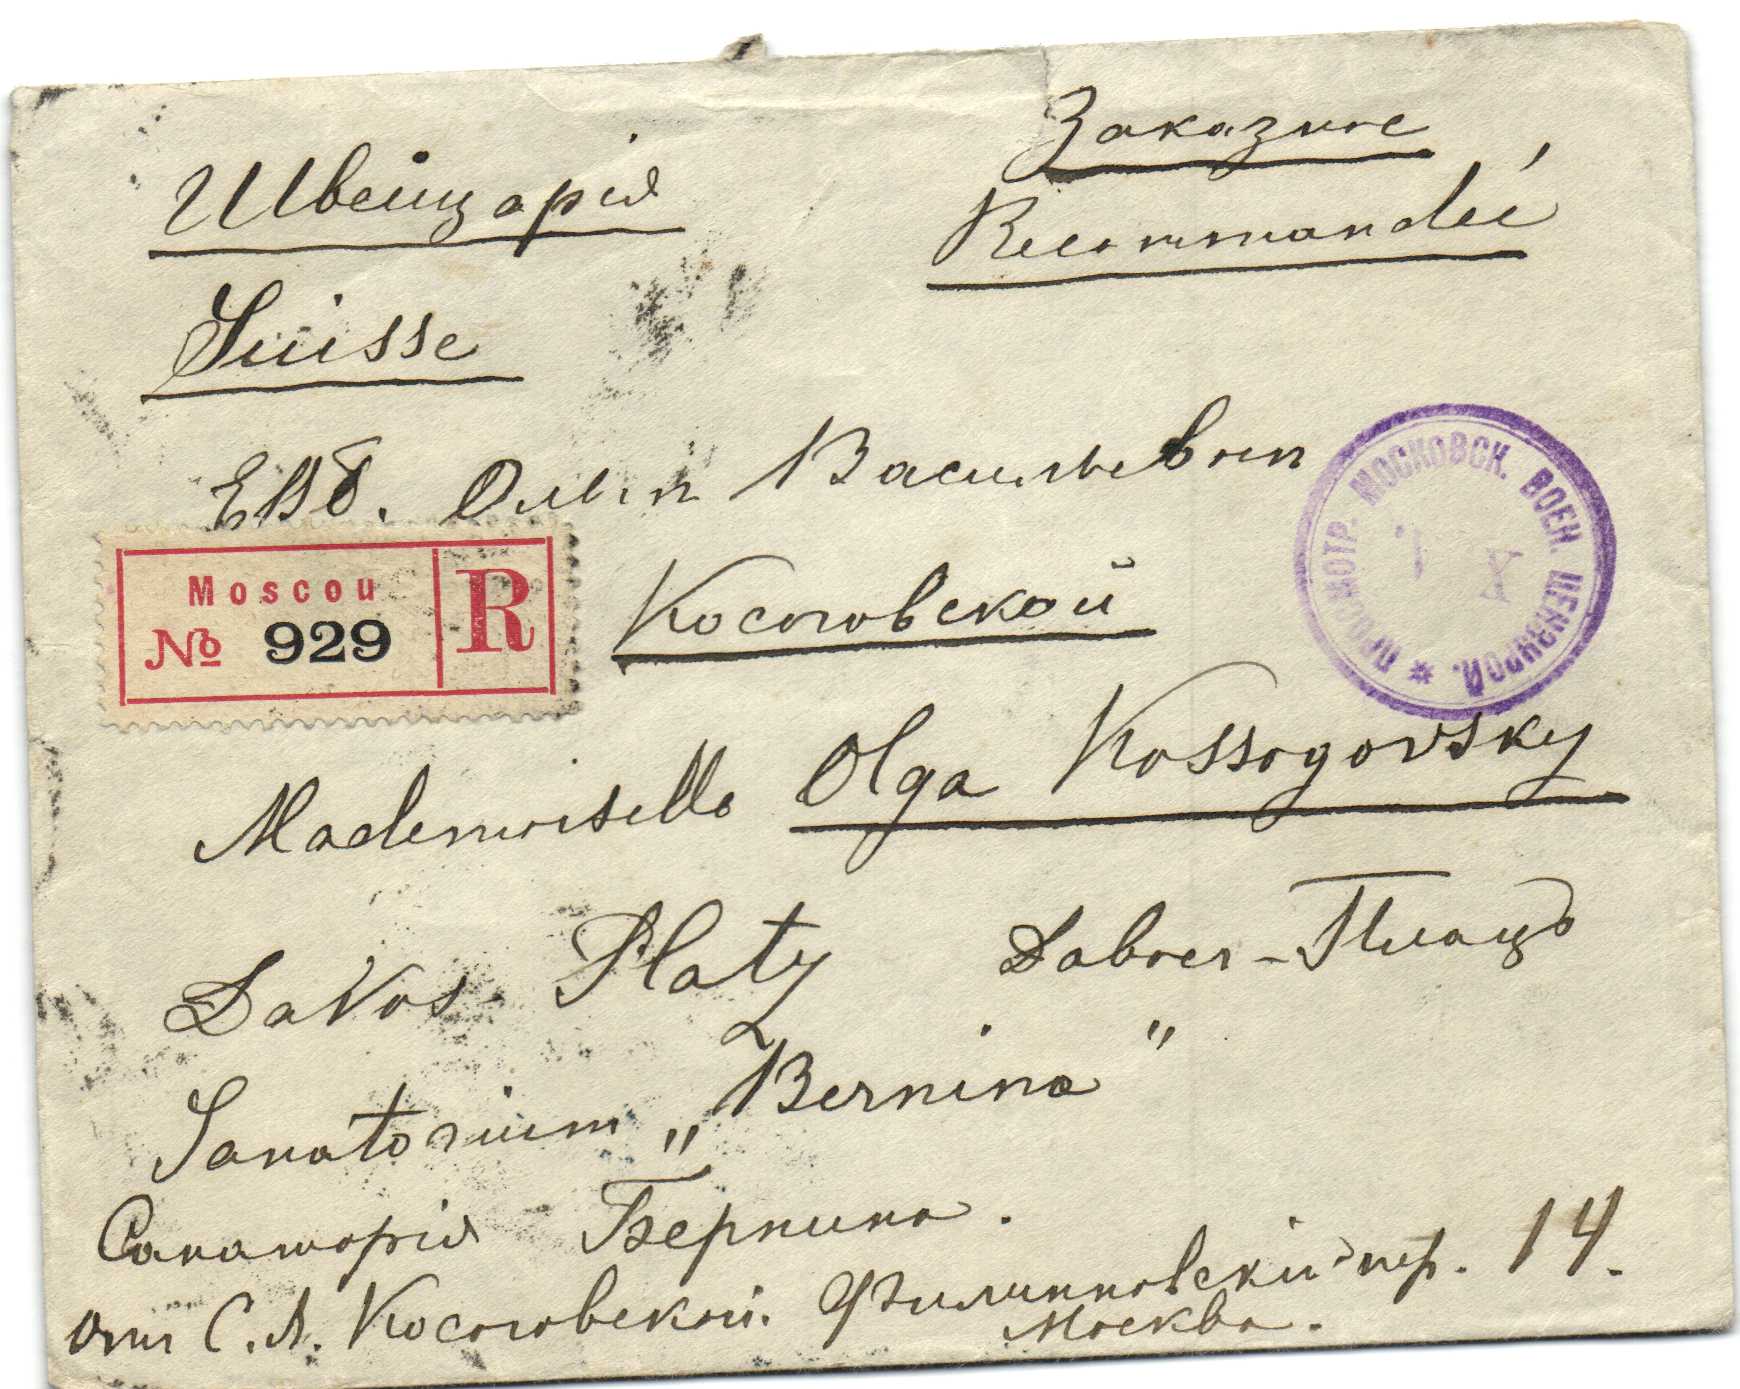 Швейцарія
Заказное
Recommandée
Suisse
ЕВБ. Ольгѣ Васильевнѣ
Косоговской
Moscou
№ 929
R
ПРОСМОТР. МОСКОВСК. ВОЕН. ЦЕНЗУРОЙ. *
X
Mademoiselle Olga Kossogovsky
Davos Platz Давос-Плацъ
Sanatorium „Bernina"
Санаторія Бернина.
отъ С. А. Косоговской. Филипповскій пер. 14.
Москва.